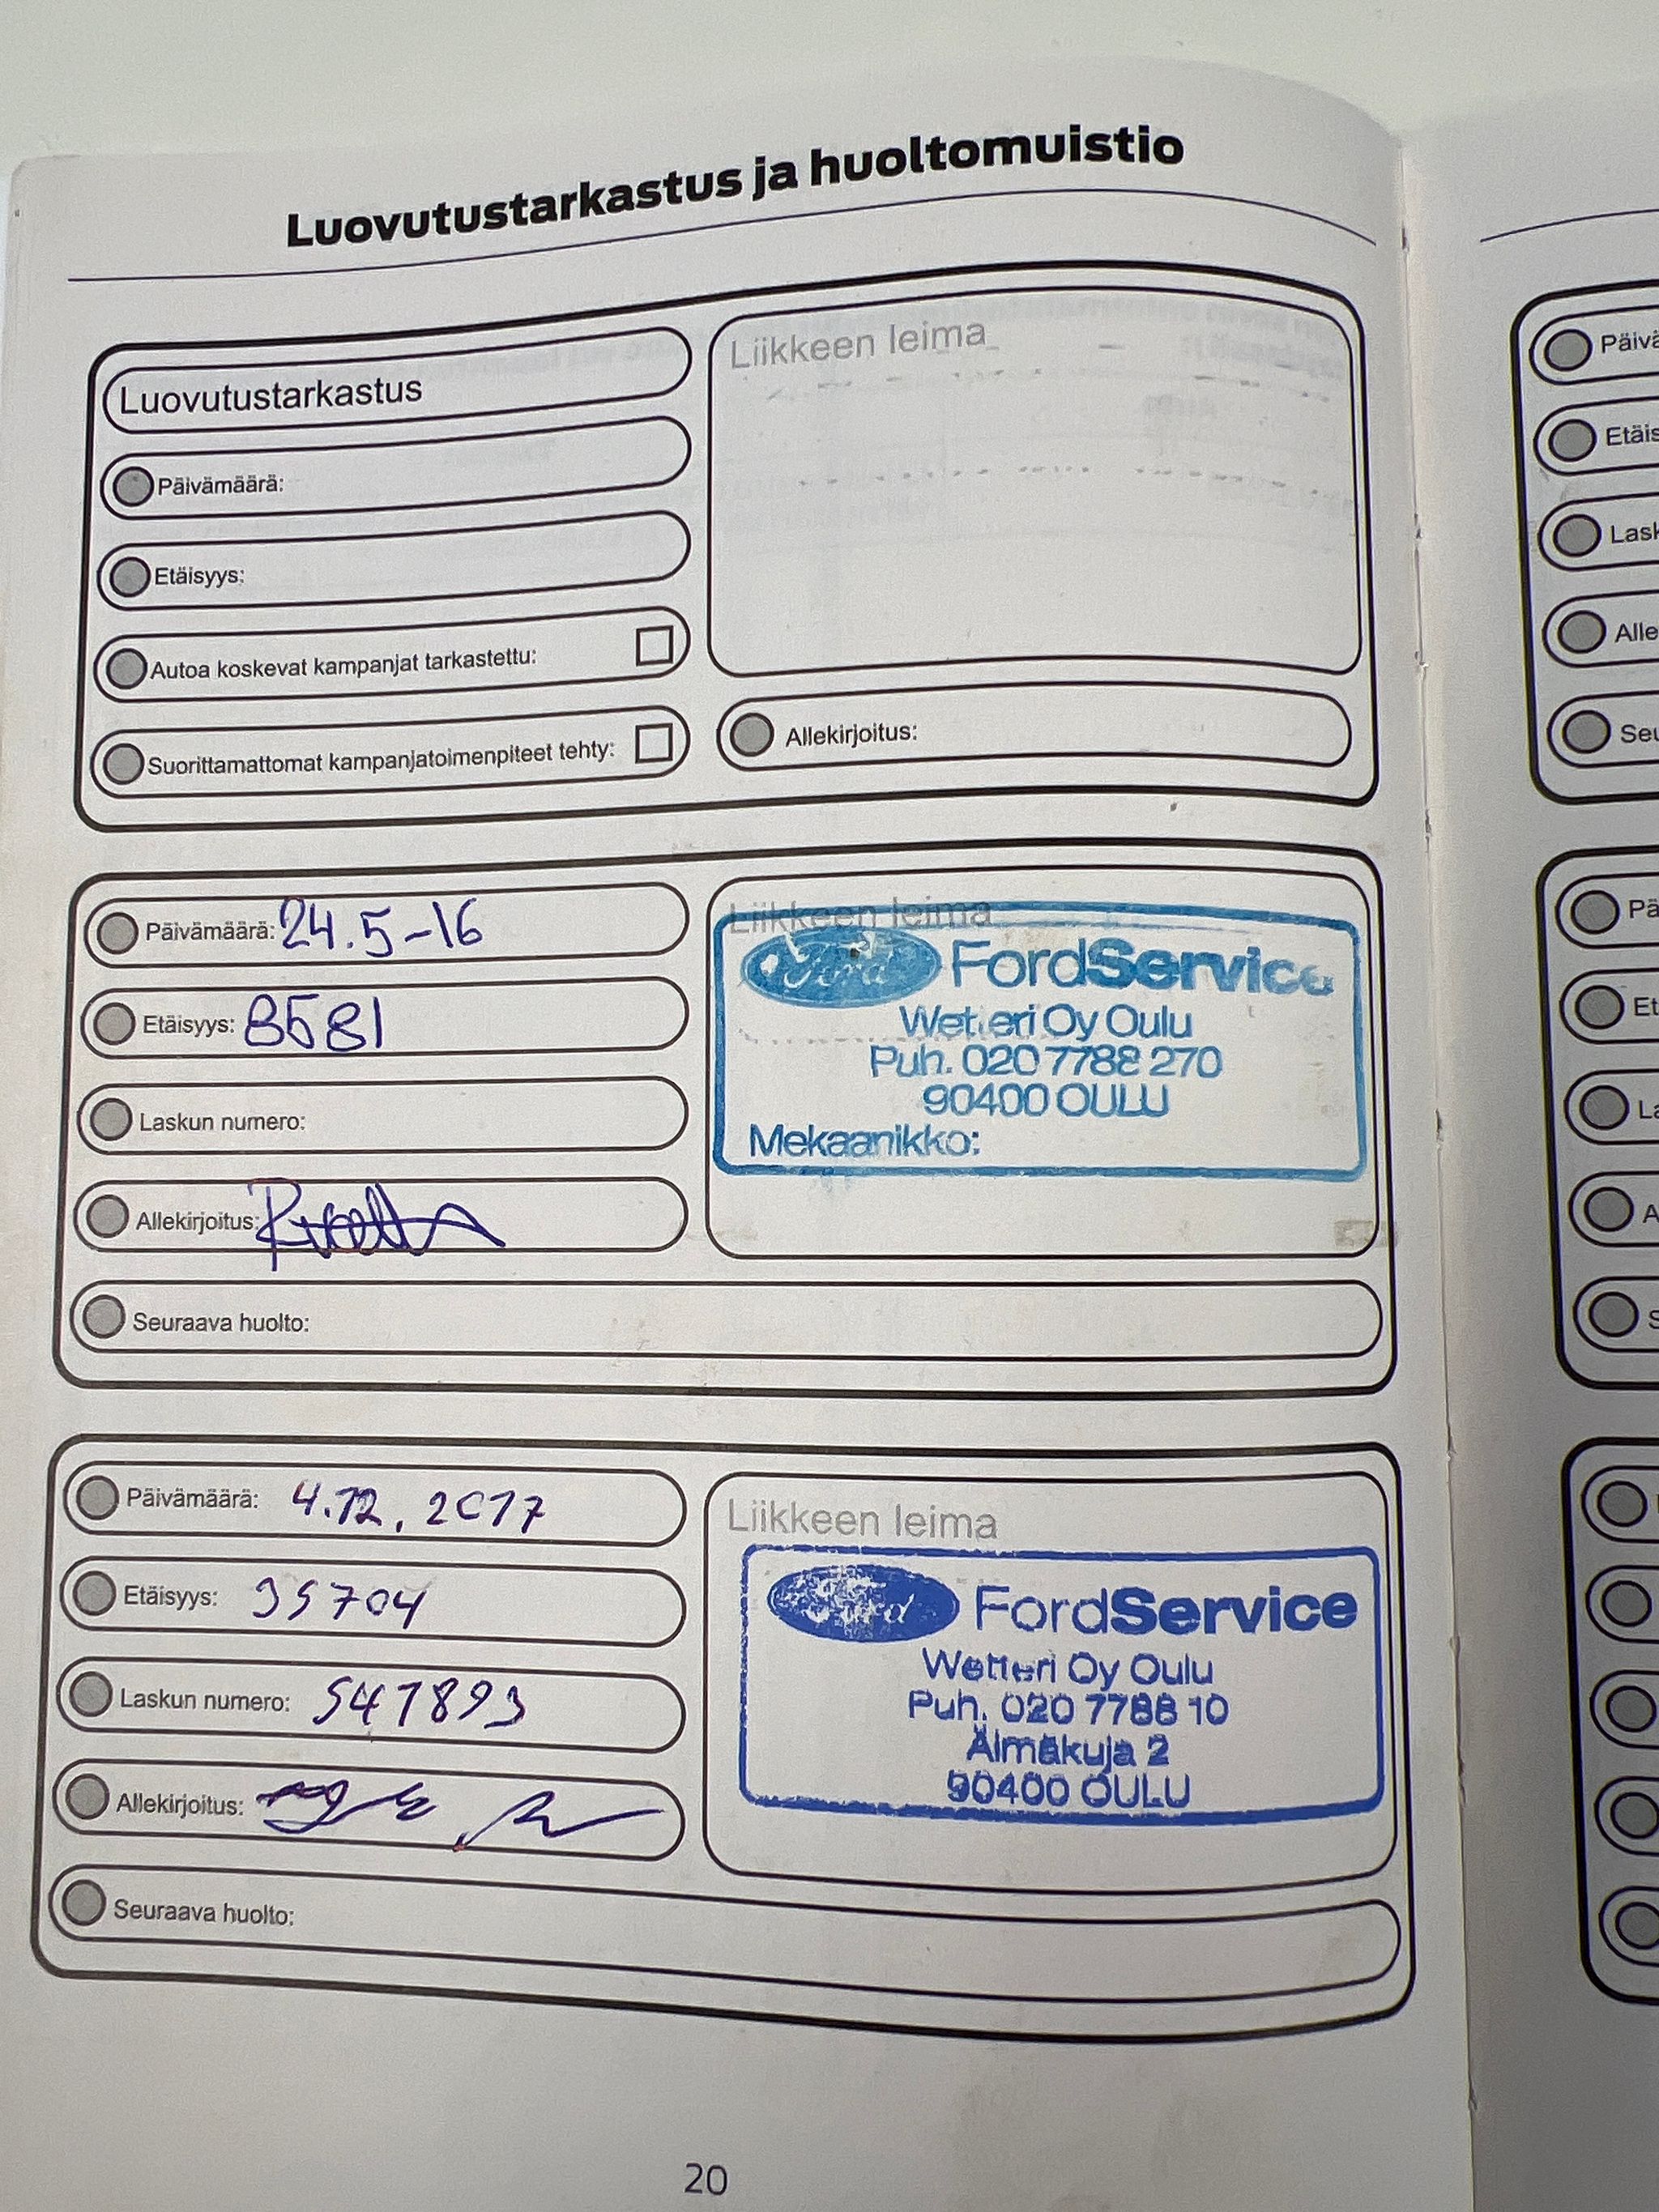 Luovutustarkastus ja huoltomuistio
Luovutustarkastus
Päivämäärä:
Etäisyys:
Autoa koskevat kampanjat tarkastettu:
Suorittamattomat kampanjatoimenpiteet tehty:
Liikkeen leima
Allekirjoitus:
Päivämäärä: 24.5-16
Etäisyys: 8581
Laskun numero:
Allekirjoitus:
Seuraava huolto:
Liikkeen leima
Ford FordService
Wetteri Oy Oulu
Puh. 020 7788 270
90400 OULU
Mekaanikko:
Päivämäärä: 4.12.2017
Etäisyys: 35704
Laskun numero: 541893
Allekirjoitus:
Seuraava huolto:
Liikkeen leima
Ford FordService
Wetteri Oy Oulu
Puh. 020 7788 10
Älmäkuja 2
90400 OULU
20
Päivä
Etäis
Lask
Alle
Seu
Pä
Et
La
A
S